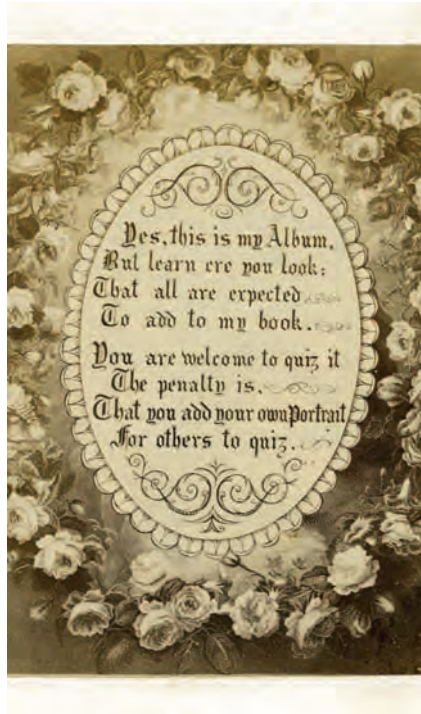 Yes, this is my Album,
But learn ere you look:
That all are expected
To add to my book.
You are welcome to quiz it
The penalty is,
That you add your own Portrait
For others to quiz.